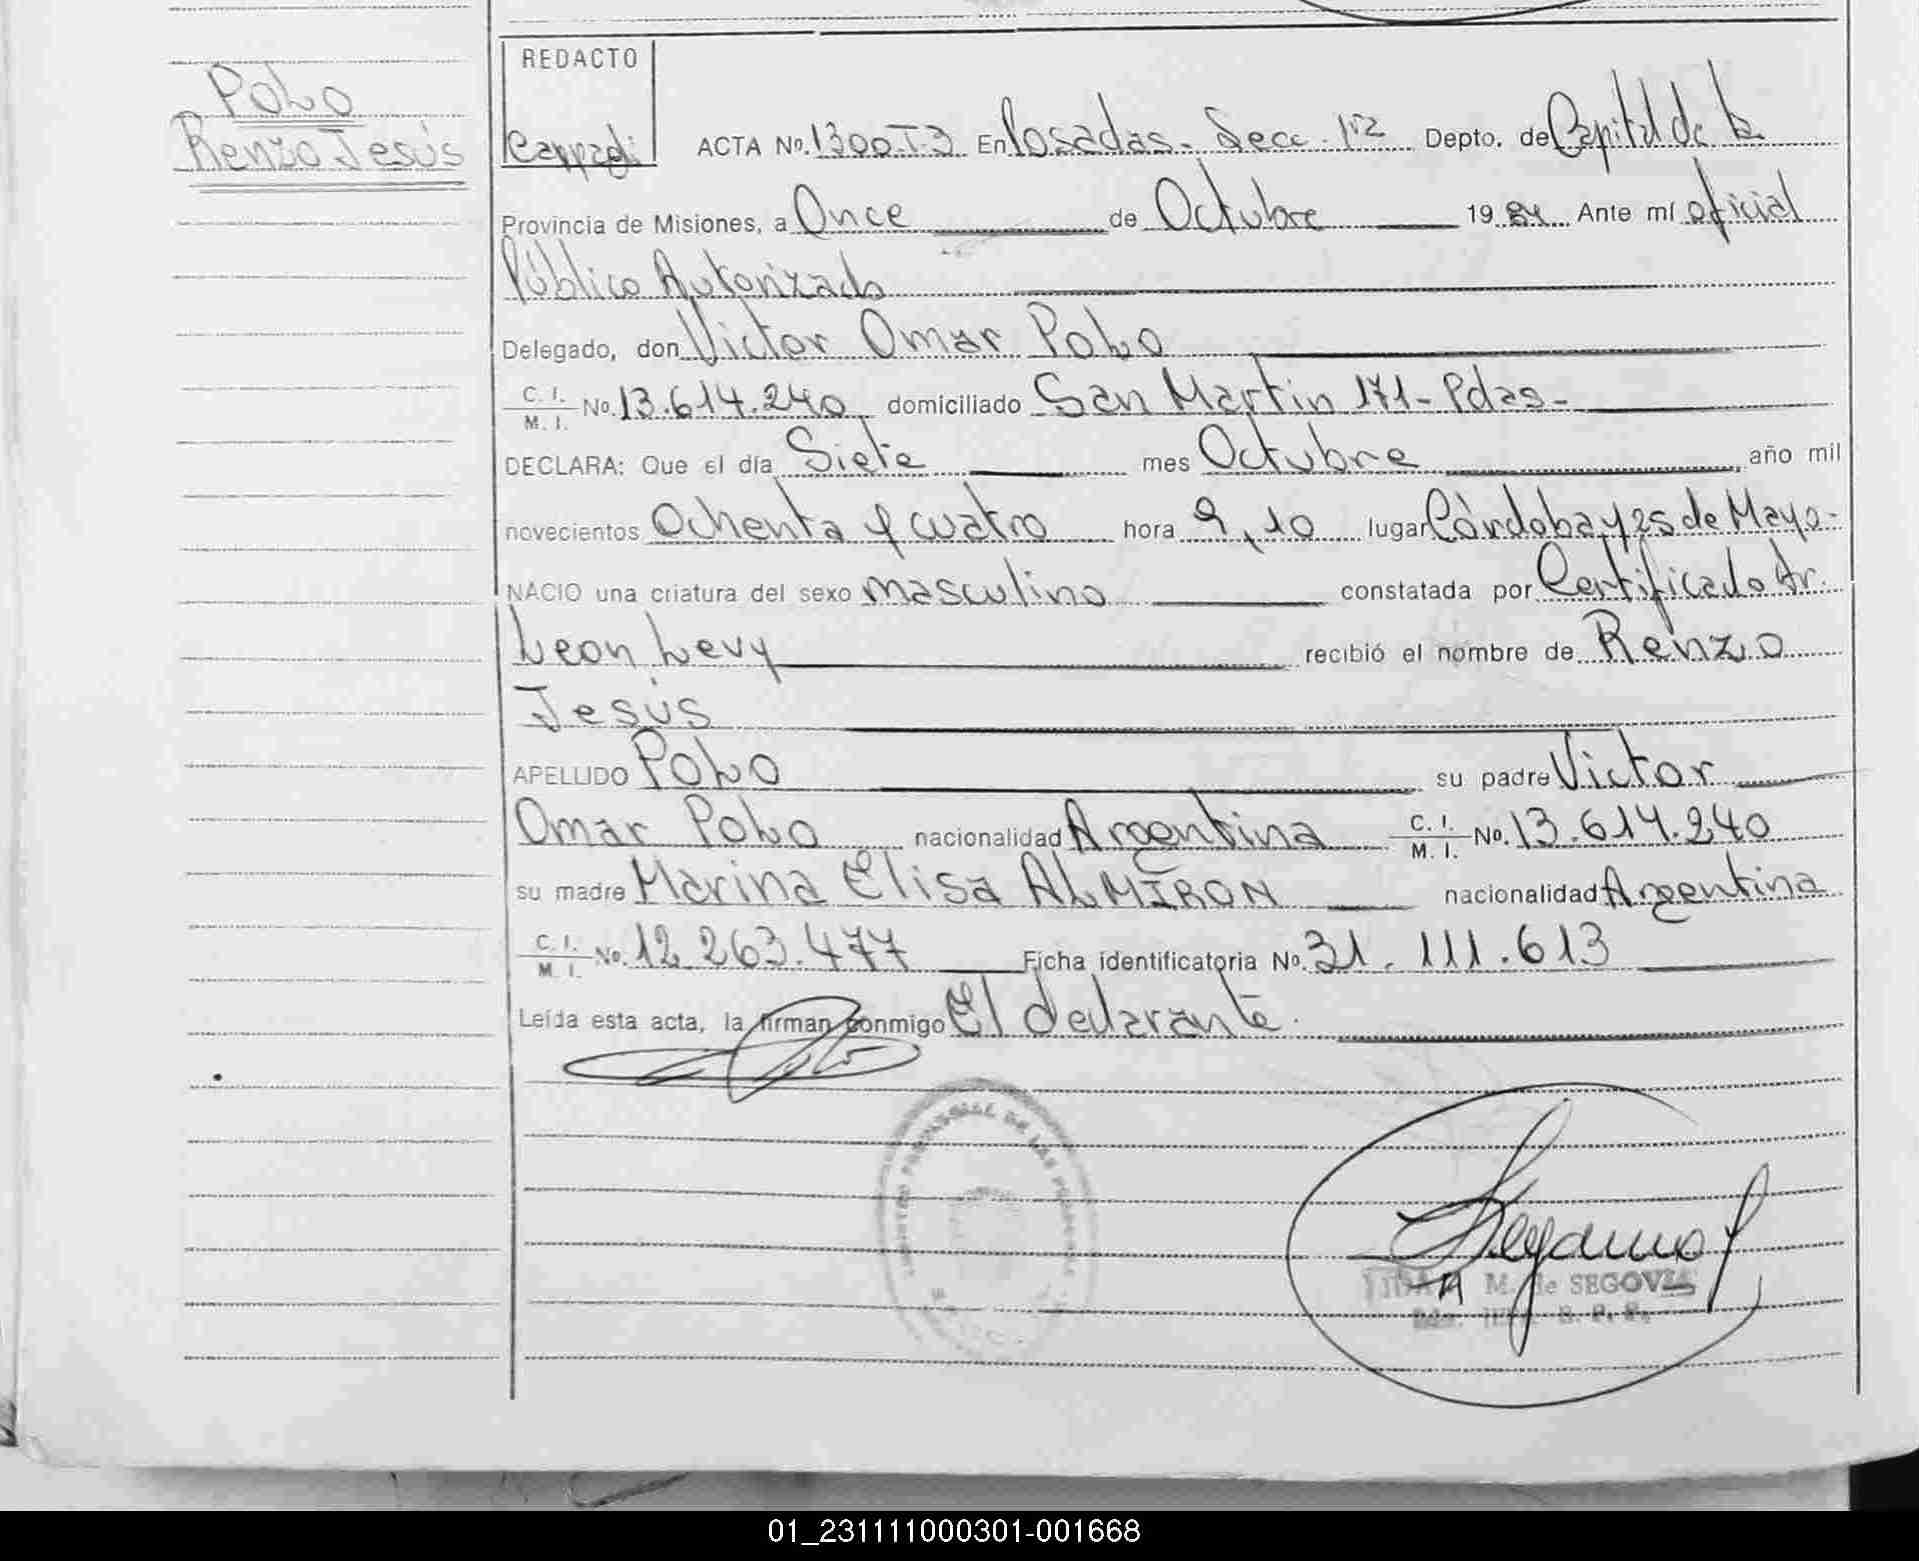 Polo
Renzo Jesús
REDACTO
ACTA No. 1300-T3 En Posadas - Secc. 1ra Depto. de Capital de la
Provincia de Misiones, a Once de Octubre 1984 Ante mí oficial
Público Autorizado
Delegado, don Victor Omar Polo
C. I. M. I. No. 13.614.240 domiciliado San Martin 171 - Pdas -
DECLARA: Que el día Siete mes Octubre, año mil
novecientos Ochenta y cuatro hora 9,10 lugar Córdoba y 25 de Mayo -
NACIO una criatura del sexo masculino constatada por Certificado Dr.
Leon Levy recibió el nombre de Renzo
Jesús
APELLIDO Polo su padre Victor
Omar Polo nacionalidad Argentina C. I. M. I. No. 13.614.240
su madre Marina Elisa ALMIRON nacionalidad Argentina
C. I. M. I. No. 12.263.477 Ficha identificatoria No. 31.111.613
Leída esta acta, la firman conmigo El declarante.
M. de SEGOVIA
01_231111000301-001668